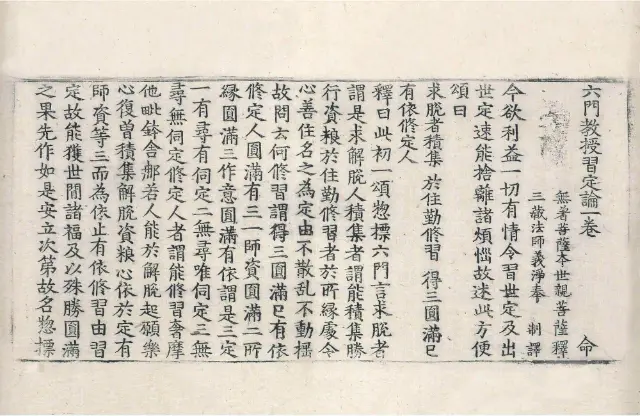 六門教授習定論一卷 命
無著菩薩本世親菩薩釋
三藏法師義淨奉 制譯
今欲利益一切有情令習世定及出
世定速能捨離諸煩惱故述此方便
頌曰
求脫者積集 於住勤修習 得三圓滿已
有依修定人
釋曰此初一頌惣摽六門言求脫者
謂是求解脫人積集者謂能積集勝
行資粮於住勤修習者於所緣處令
心善住名之為定由不散乱不動揺
故問云何修習謂得三圓滿已有依
修定人圓滿有三一師資圓滿二所
緣圓滿三作意圓滿有依謂是三定
一有尋有伺定二無尋唯伺定三無
尋無伺定修定人者謂能修習奢摩
他毗鉢舍那若人能於解脫起願樂
心復曾積集解脫資粮心依於定有
師資等三而為依止有依修習由習
定故能獲世間諸福及以殊勝圓滿
之果先作如是安立次第故名惣摽